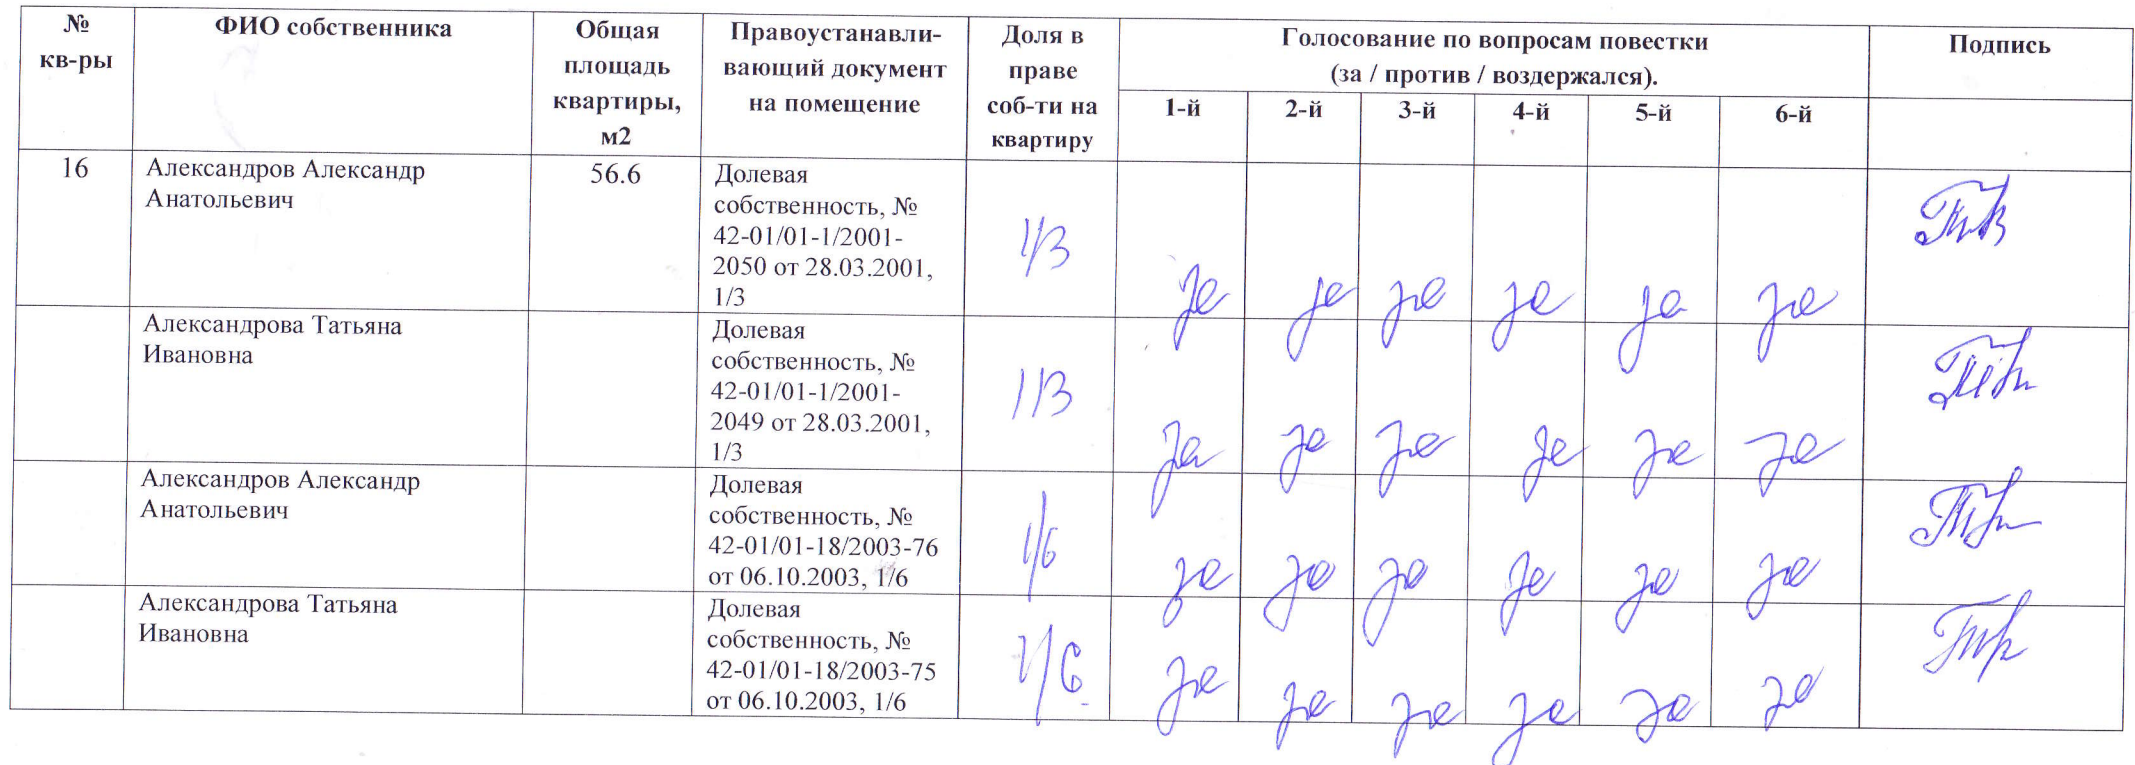 № кв-ры
ФИО собственника
Общая площадь квартиры, м2
Правоустанавли-
вающий документ
на помещение
Доля в праве соб-ти на квартиру
Голосование по вопросам повестки
(за / против / воздержался).
Подпись
1-й 2-й 3-й 4-й 5-й 6-й
16
Александров Александр
Анатольевич
56.6
Долевая
собственность, №
42-01/01-1/2001-
2050 от 28.03.2001,
1/3
1/3
за за за за за за
Александрова Татьяна
Ивановна
Долевая
собственность, №
42-01/01-1/2001-
2049 от 28.03.2001,
1/3
1/3
за за за за за за
Александров Александр
Анатольевич
Долевая
собственность, №
42-01/01-18/2003-76
от 06.10.2003, 1/6
1/6
за за за за за за
Александрова Татьяна
Ивановна
Долевая
собственность, №
42-01/01-18/2003-75
от 06.10.2003, 1/6
1/6
за за за за за за